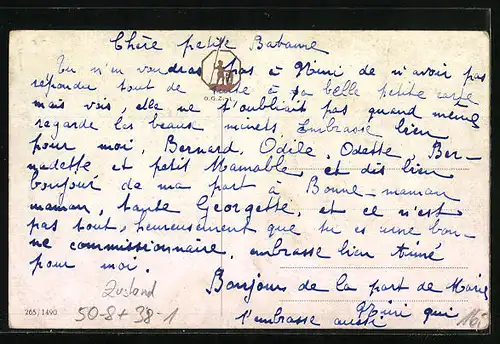 Chère petite Babaune
Tu n'en voudras pas à Nimi de n'avoir pas
répondu tout de suite à ta belle petite carte
mais vois, elle ne t'oubliait pas quand même
regarde les beaux minets. Embrasse bien
pour moi, Bernard, Odile, Odette, Ber-
nadette et petit Mamable, et dis bien
bonjour de ma part à Bonne-maman
maman, tante Georgette, et ce n'est
pas tout, heureusement que tu es une bon-
ne commissionnaire, embrasse bien Aimé
pour moi.
Bonjours de la part de Marie
Nimi qui
t'embrasse aussi
Zustand
50-8+38-1
265/1490
16,